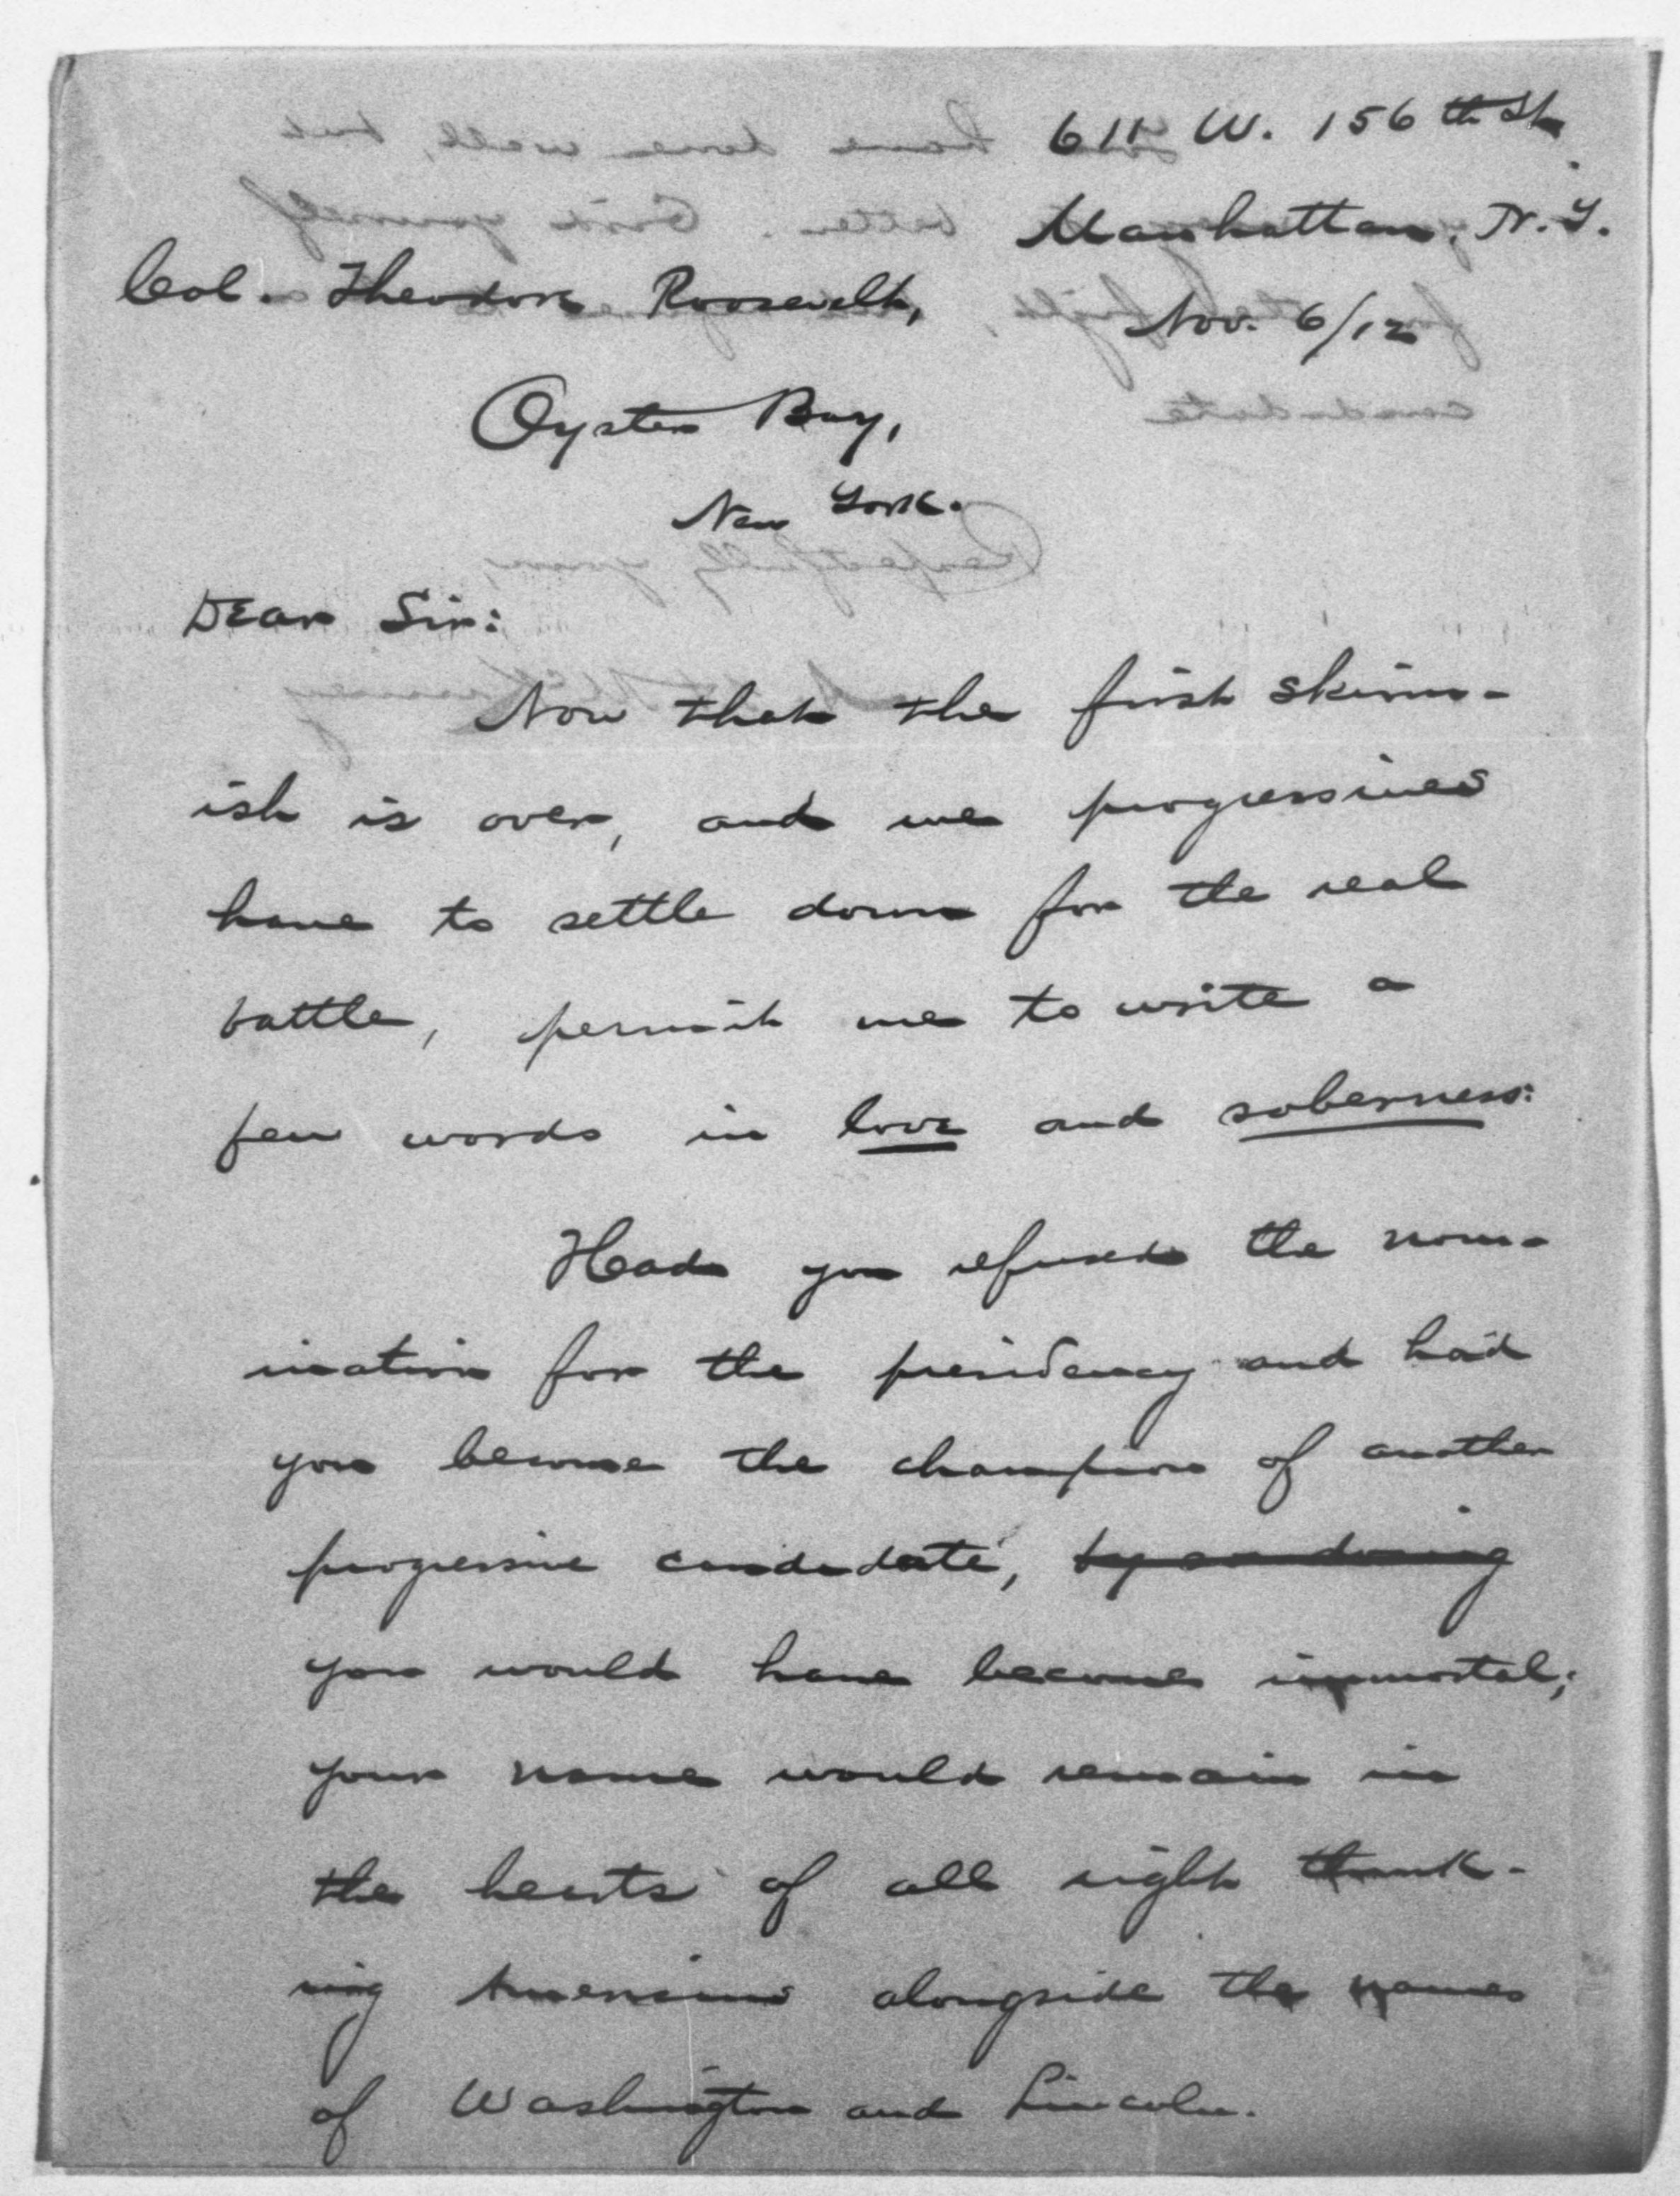 611 W. 156th St.
Manhattan, N.Y.
Col. Theodore Roosevelt,
Nov. 6/12
Oyster Bay,
New York.
Dear Sir:
Now that the first skirm-
ish is over, and we progressives
have to settle down for the real
battle, permit me to write a
few words in love and soberness:
Had you refused the nom-
ination for the presidency and had
you become the champion of another
progressive candidate, by so doing
you would have become immortal;
your name would remain in
the hearts of all right think-
ing Americans alongside the names
of Washington and Lincoln.